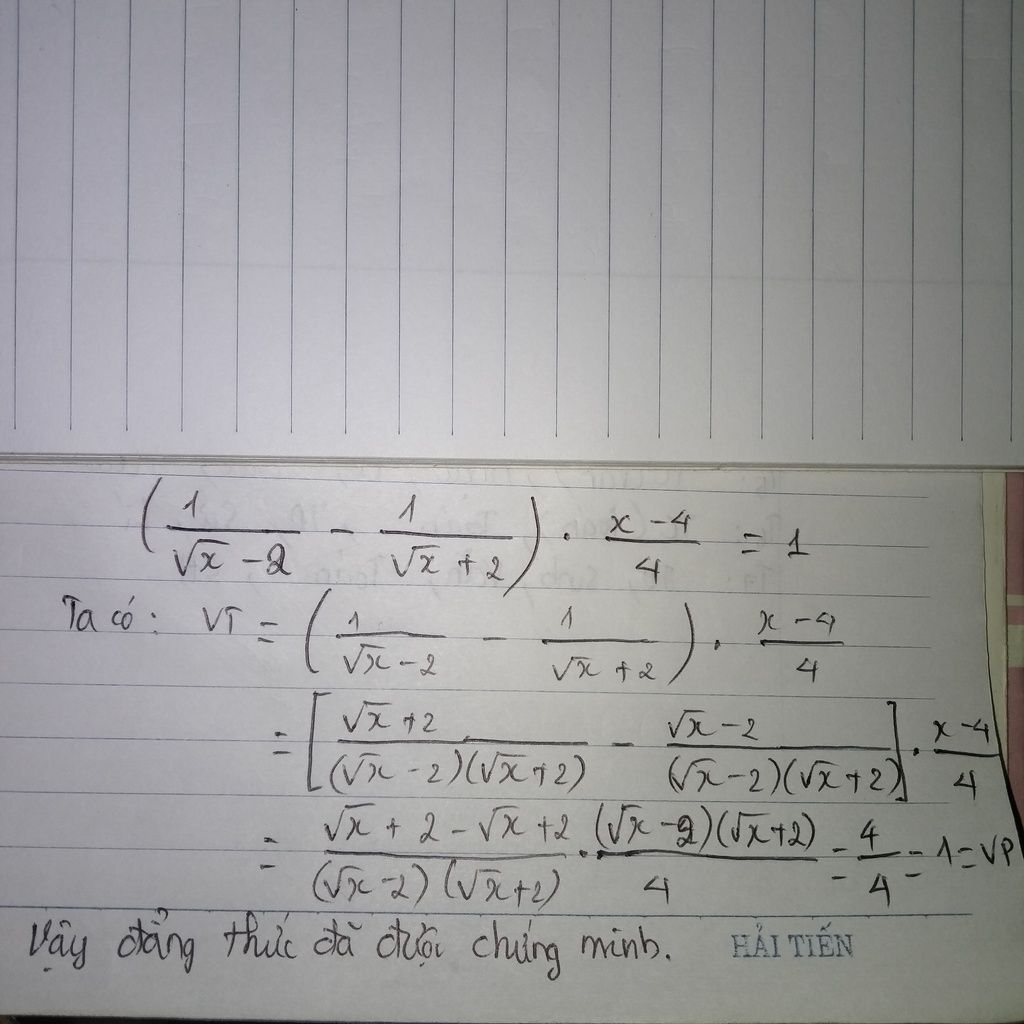 (1/(√x - 2) - 1/(√x + 2)) . (x - 4)/4 = 1
Ta có: VT = (1/(√x - 2) - 1/(√x + 2)) . (x - 4)/4
= [(√x + 2)/((√x - 2)(√x + 2)) - (√x - 2)/((√x - 2)(√x + 2))] . (x - 4)/4
= (√x + 2 - √x + 2)/((√x - 2)(√x + 2)) . ((√x - 2)(√x + 2))/4 = 4/4 = 1 = VP
Vậy đẳng thức đã được chứng minh. HẢI TIẾN